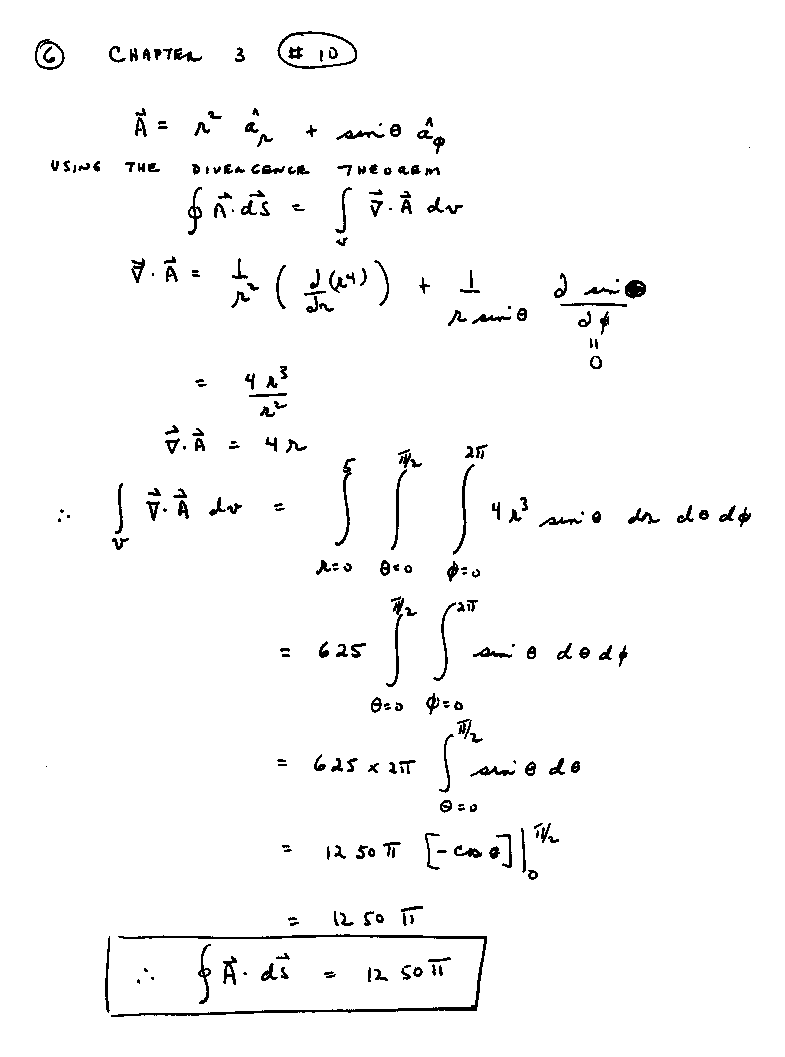 ⑥ CHAPTER 3 # 10
A⃗ = r² â_r + sin θ â_φ
USING THE DIVERGENCE THEOREM
∮ A⃗ · dS⃗ = ∫_v ∇⃗ · A⃗ dv
∇⃗ · A⃗ = 1/r² ( d/dr (r⁴) ) + 1/(r sin θ) ∂ sin θ/∂φ
" 0
= 4r³/r²
∇⃗ · A⃗ = 4r
∴ ∫_v ∇⃗ · A⃗ dv = ∫_{r=0}^{5} ∫_{θ=0}^{π/2} ∫_{φ=0}^{2π} 4r³ sin θ dr dθ dφ
= 625 ∫_{θ=0}^{π/2} ∫_{φ=0}^{2π} sin θ dθ dφ
= 625 × 2π ∫_{θ=0}^{π/2} sin θ dθ
= 1250 π [-cos θ] |_0^{π/2}
= 1250 π
∴ ∮ A⃗ · dS⃗ = 1250 π